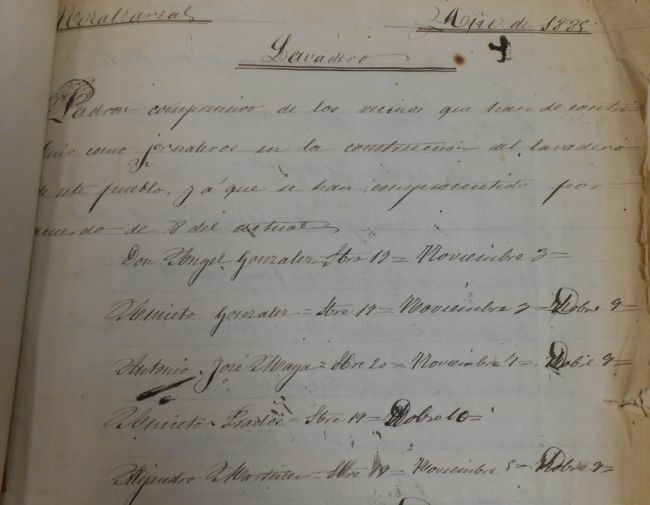 Año de 1895
Lavadero
Padron comprensivo de los vecinos que han de contri
buir como jornaleros en la construcción del lavadero
de este pueblo, y á que se han comprometido por
acuerdo de 8 del actual
Don Angel Gonzalez = Sbre 19 = Noviembre 3 =
Aniceto Gonzalez = Sbre 19 = Noviembre 3 = Dobre 9 =
Antonio José Maya = Sbre 20 = Noviembre 7 = 9 =
Aniceto Prados = Sbre 19 = Dobre 10 =
Alejandro Martinez = Sbre 19 = Noviembre 5 = Dobre 9 =